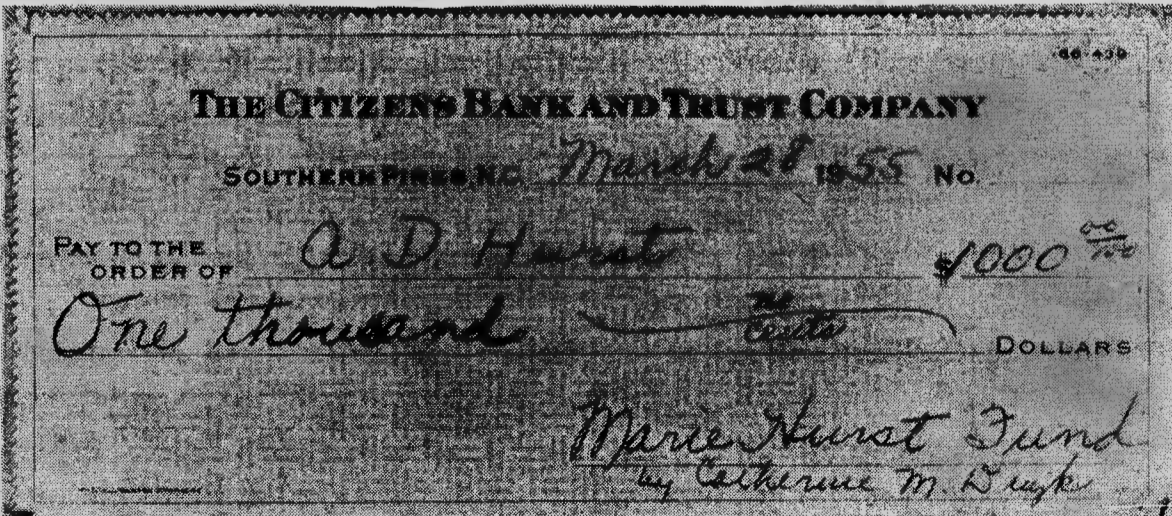 66-439
THE CITIZENS BANK AND TRUST COMPANY
SOUTHERN PINES, N.C. March 28 1955 No.
PAY TO THE ORDER OF A D. Hurst $1000 00/100
One thousand no cents DOLLARS
Marie Hurst Fund
by Catherine M.